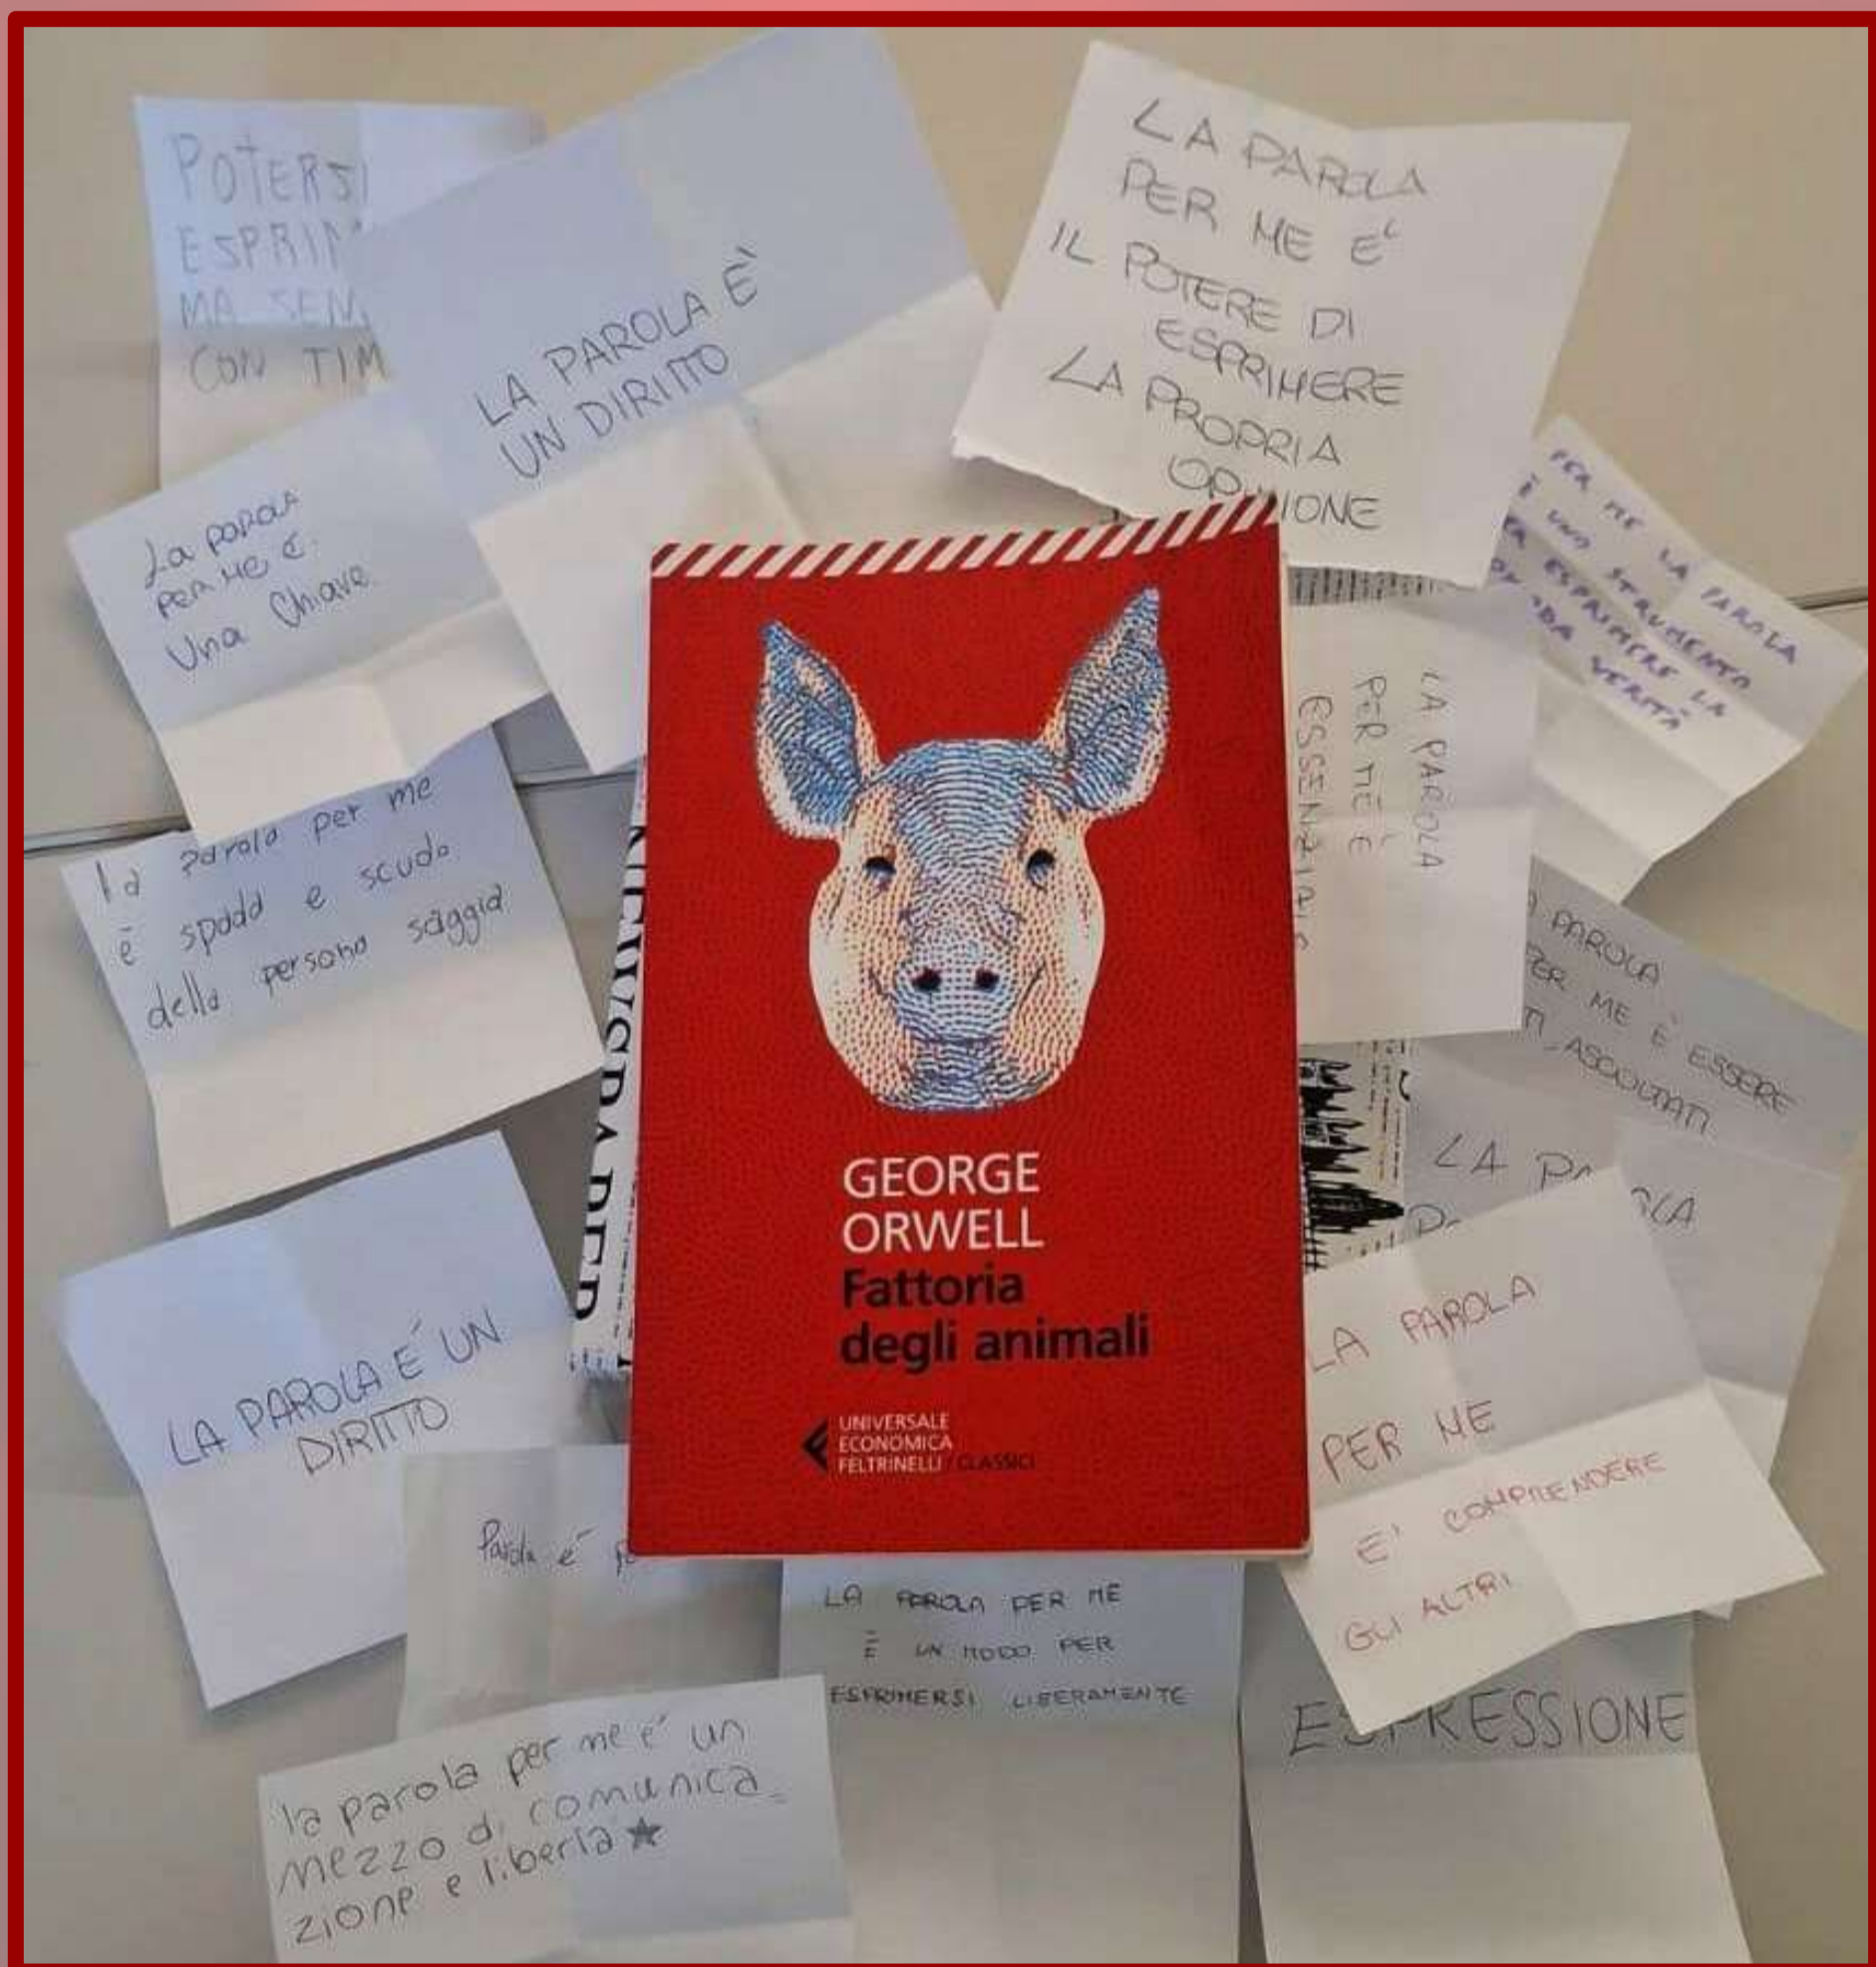 POTERSI
MA
CON
LA PAROLA È
UN DIRITTO
LA PAROLA
PER ME E'
IL POTERE DI
ESPRIMERE
LA PROPRIA
OPINIONE
La parola
per me è
Una Chiave
PER ME LA PAROLA
È UNO STRUMENTO
ESPRIMERE LA
VERITÀ
LA PAROLA
PER ME È
ESSENZIALE
la parola per me
è spada e scudo
della persona saggia
PAROLA
PER ME È ESSERE
ASCOLTATI
NEWSPAPER
GEORGE
ORWELL
Fattoria
degli animali
UNIVERSALE
ECONOMICA
FELTRINELLI CLASSICI
LA PAROLA
LA PAROLA É UN
DIRITTO
LA PAROLA
PER ME
E' COMPRENDERE
GLI ALTRI
Parola é
LA PAROLA PER ME
È UN MODO PER
ESPRIMERSI LIBERAMENTE
ESPRESSIONE
la parola per me e' un
mezzo di comunica-
zione e libertà ★